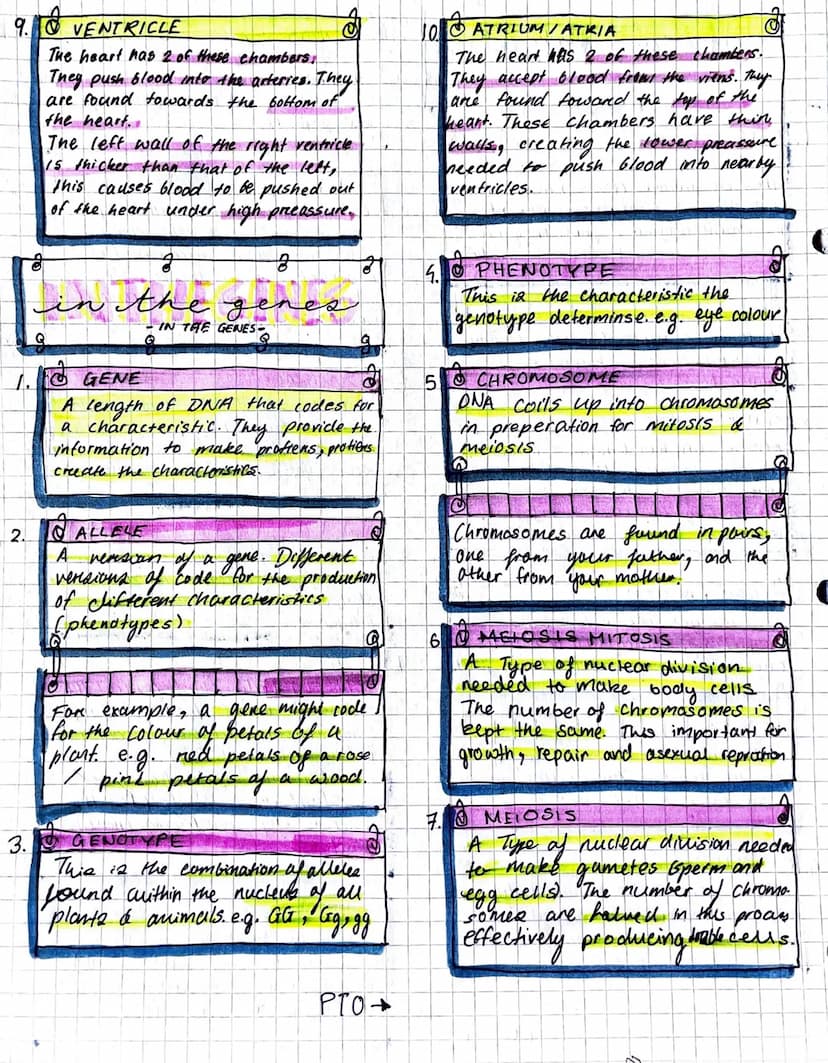 9. VENTRICLE
The heart has 2 of these chambers.
They push blood into the arteries. They
are found towards the bottom of
the heart.
The left wall of the right ventricle
is thicker than that of the left,
this causes blood to be pushed out
of the heart under high preassure.
10. ATRIUM/ATRIA
The heart has 2 of these chambers.
They accept blood from the viens. They
are found toward the top of the
heart. These chambers have thin
walls, creating the lower preassure
needed to push blood into nearby
ventricles.
IN THE GENES
in the genes
-IN THE GENES-
1. GENE
A length of DNA that codes for
a characteristic. They provide the
information to make protiens, protiens
create the characteristics.
2. ALLELE
A version of a gene. Different
versions of code for the production
of different characteristics
(phenotypes)
For example, a gene might code
for the colour of petals of a
plant. e.g. red petals of a rose
/ pink petals of a
3. GENOTYPE
This is the combination of alleles
found within the nucleus of all
plants & animals. e.g. GG, Gg, gg
4. PHENOTYPE
This is the characteristic the
genotype determinse. e.g. eye colour
5 CHROMOSOME
DNA coils up into chromasomes
in preperation for mitosis &
meiosis
Chromasomes are found in pairs,
one from your father, and the
other from your mother.
6 MEIOSIS MITOSIS
A Type of nuclear division
needed to make body cells
The number of chromasomes is
kept the same. This important for
growth, repair and asexual
7. MEIOSIS
A Type of nuclear division needed
to make gametes (sperm and
egg cells). The number of chromo-
somes are halved in this
effectively producing cells.
PTO →